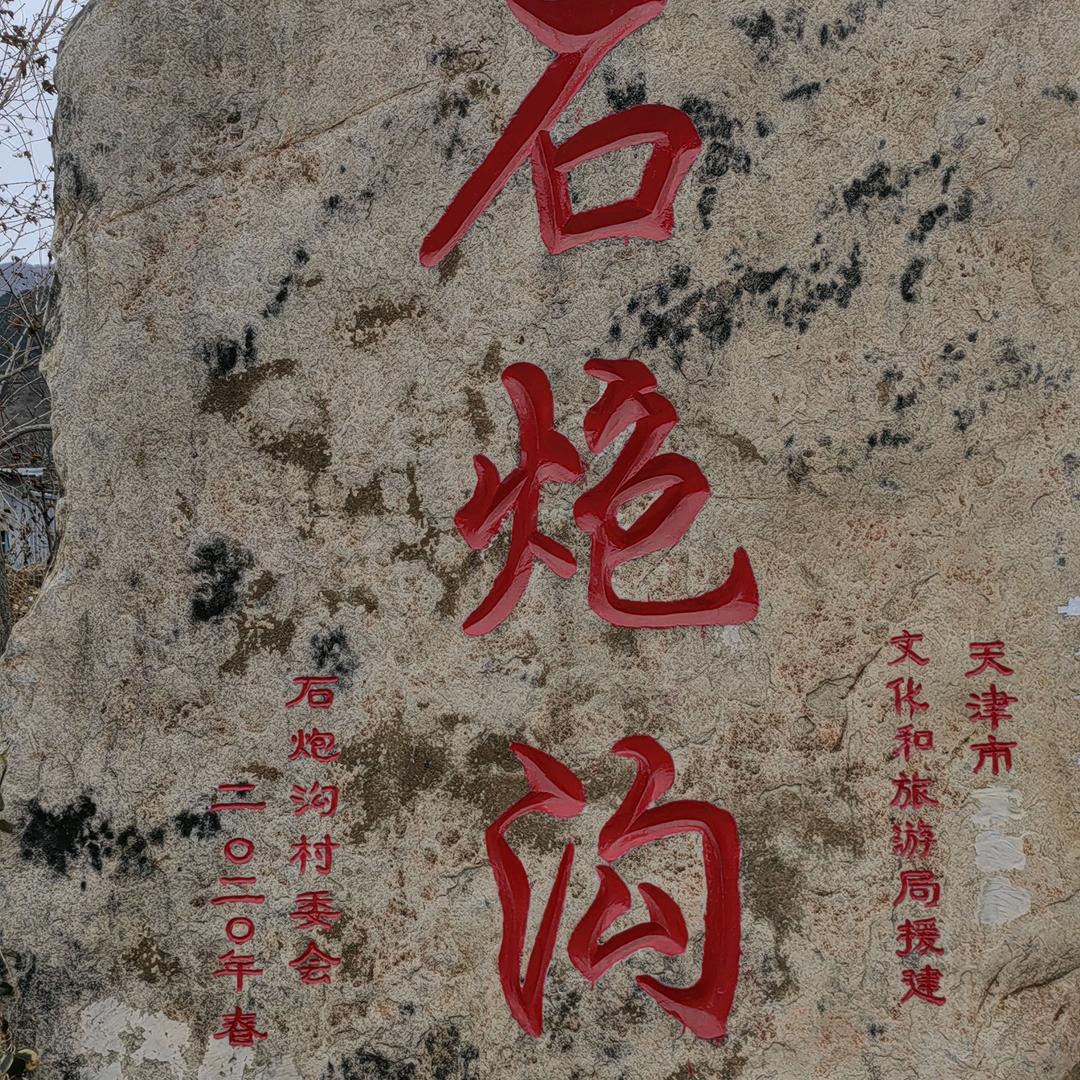 石炮沟
天津市
文化和旅游局援建
石炮沟村委会
二〇二〇年春